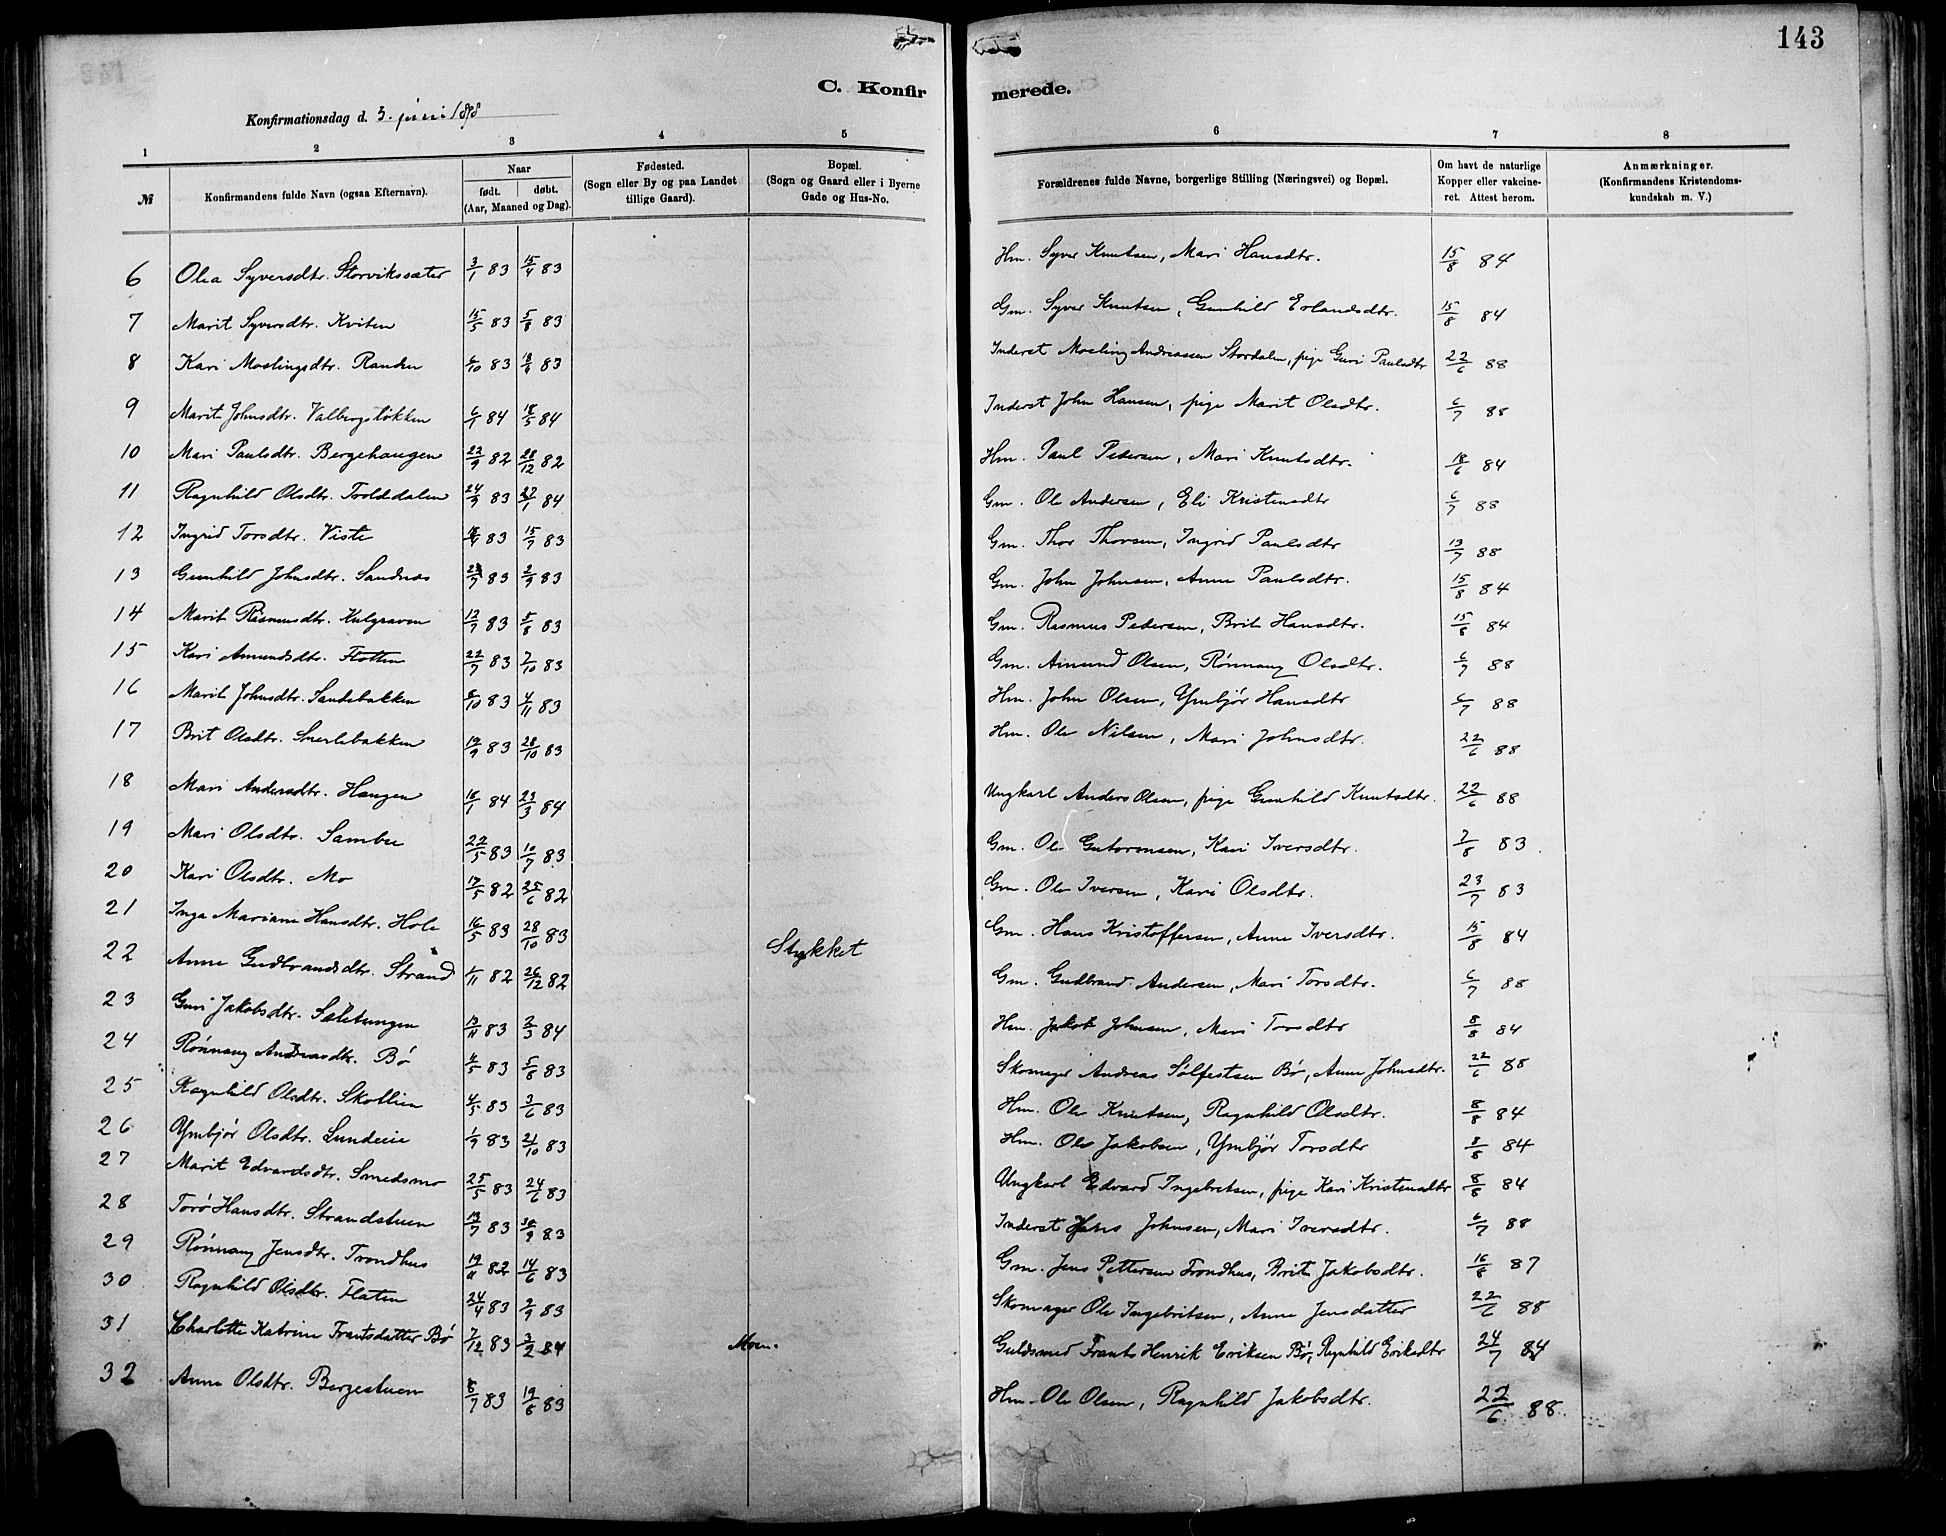 143
C. Konfir merede.
Konfirmationsdag d. 5. juni 1898
1 2 3 4 5 6 7 8
№ Konfirmandens fulde Navn (ogsaa Efternavn). Naar født. døbt. (Aar, Maaned og Dag). Fødested. (Sogn eller By og paa Landet tillige Gaard). Bopæl. (Sogn og Gaard eller i Byerne Gade og Hus-No. Forældrenes fulde Navne, borgerlige Stilling (Næringsvei) og Bopæl. Om havt de naturlige Kopper eller vakcineret. Attest herom. Anmærkninger. (Konfirmandens Kristendomskundskab m. V.)
6 Olea Syversdtr. Storvikssæter 3/1 83 15/4 83 Hm. Syver Knutsen, Mari Hansdtr. 15/8 84
7 Marit Syversdtr. Kviten 15/5 83 5/8 83 Gm. Syver Knutsen, Gunhild Erlandsdtr. 15/8 84
8 Kari Moslingsdtr. Randen 6/10 83 83 Inderst Mosling Andreassen Stordalen, pige Guri Paulsdtr 22/6 88
9 Marit Johnsdtr. Valbergsløkken 84 18/5 84 Inderst John Hansen, pige Marit Olsdtr. 6/7 88
10 Mari Paulsdtr. Bergehaugen 22/9 82 28/12 82 Hm. Paul Pedersen, Mari Knutsdtr. 18/6 84
11 Ragnhild Olsdtr. Troldedalen 24/9 83 27/1 84 Gm. Ole Andersen, Eli Kristensdtr 6/7 88
12 Ingrid Torsdtr. Viste 83 15/7 83 Gm. Thor Thorsen, Ingrid Paulsdtr 13/7 88
13 Gunhild Johnsdtr. Sandnæs 83 2/9 83 Gm. John Johnsen, Anne Paulsdtr. 15/8 84
14 Marit Rasmusdtr. Kulgraven 12/7 83 5/8 83 Gm. Rasmus Pedersen, Brit Hansdtr. 15/8 84
15 Kari Amundsdtr. Flotten 22/7 83 7/10 83 Gm. Amund Olsen, Rönnaug Olsdtr. 6/7 88
16 Marit Johnsdtr. Sandebakken 6/10 83 4/11 83 Hm. John Olsen, Ymbjør Hansdtr 6/7 88
17 Brit Olsdtr. Smerlebakken 19/9 83 28/10 83 Hm. Ole Nilsen, Mari Johnsdtr. 22/6 88
18 Mari Andersdtr. Haugen 18/1 84 23/3 84 Ungkarl Anders Olsen, pige Gunhild Knutsdtr. 22/6 88
19 Mari Olsdtr. Sambu 22/5 83 10/7 83 Gm. Ole Gutormsen, Kari Iversdtr. 7/8 83
20 Kari Olsdtr. Mo 17/5 82 25/6 82 Gm. Ole Iversen, Kari Olsdtr. 23/7 83
21 Inga Mariane Hansdtr. Hole 16/5 83 28/10 83 Gm. Hans Kristoffersen, Anne Iversdtr. 15/8 84
22 Anne Gudbrandsdtr. Strand 6/11 82 26/12 82 Stykket Gm. Gudbrand Andersen, Mari Torsdtr. 6/7 88
23 Guri Jakobsdtr. Sletungen 13/11 83 2/3 84 Hm. Jakob Johnsen, Mari Torsdtr 8/8 84
24 Rönnaug Andreasdtr. Bø 4/5 83 5/8 83 Skomager Andreas Sølfestsen Bø, Anne Johnsdtr. 22/6 88
25 Ragnhild Olsdtr. Skotlien 4/5 83 3/6 83 Hm. Ole Knutsen, Ragnhild Olsdtr. 8/8 84
26 Ymbjør Olsdtr. Lundeie 1/9 83 21/10 83 Hm. Ole Jakobsen, Ymbjør Torsdtr 8/8 84
27 Marit Edvardsdtr. Smedsmo 25/5 83 24/6 83 Ungkarl Edvard Ingebretsen, pige Kari Kristensdtr 8/8 84
28 Torø Hansdtr. Strandstuen 13/7 83 30/9 83 Inderst Hans Johnsen, Mari Iversdtr. 6/7 88
29 Rönnaug Jensdtr. Trondhus 19/11 82 14/6 83 Gm. Jens Pettersen Trondhus, Brit Jakobsdtr. 16/8 87
30 Ragnhild Olsdtr. Flaten 24/4 83 2/9 83 Skomager Ole Ingebritsen, Anne Jensdatter 22/6 88
31 Charlotte Katrine Frantsdatter Bø 7/12 83 3/2 84 Moen. Guldsmed Frants Henrik Eriksen Bø, Ragnhild Eriksdtr 24/7 84
32 Anne Olsdtr. Bergestuen 8/7 83 19/8 83 Hm. Ole Olsen, Ragnhild Jakobsdtr. 22/6 88